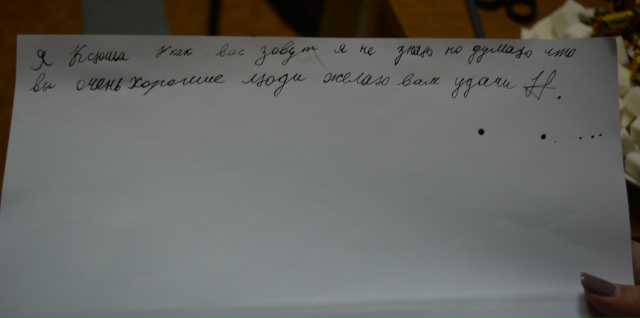 Я Ксюша как вас зовут я не знаю но думаю что
вы очень хорошие люди желаю вам удачи